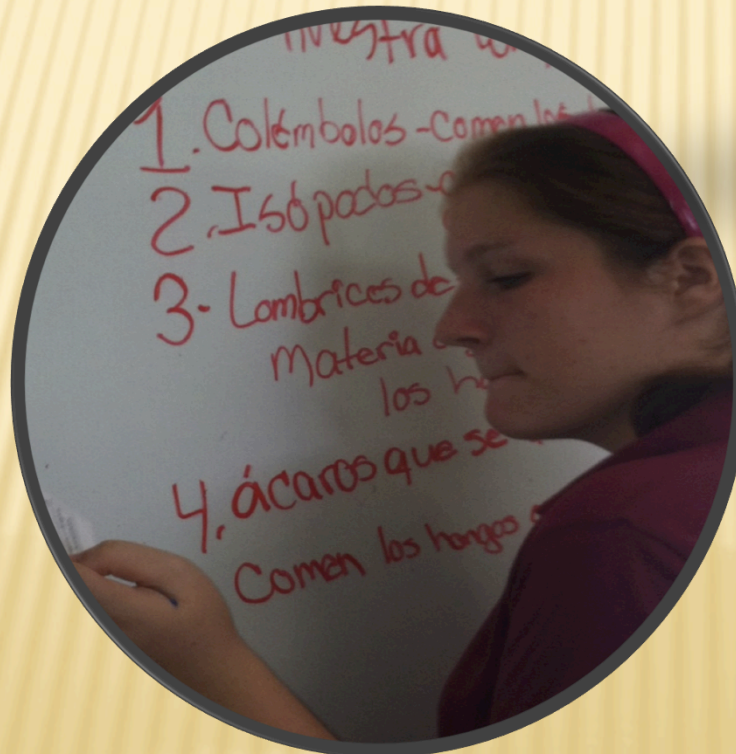 nuestra
1. Colémbolos - Comen los
2. Isópodos -
3. Lombrices de
Materia
los
4. ácaros que se
Comen los hongos